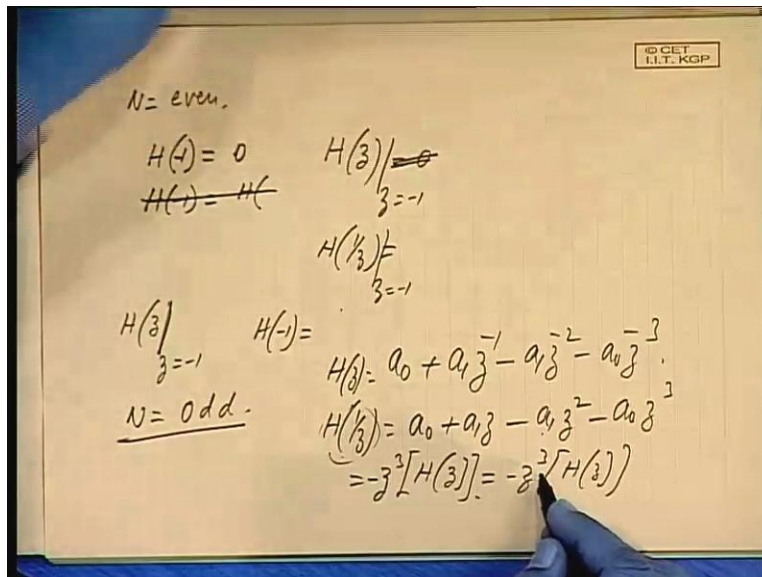 © CET
I.I.T. KGP
N = even.
H(-1) = 0
H(z)|=0
z=-1
H(-1) = H(
H(1/z)|=
z=-1
H(z)|
z=-1
H(-1)=
H(z) = a₀ + a₁z⁻¹ - a₁z⁻² - a₀z⁻³.
N = Odd.
H(1/z) = a₀ + a₁z - a₁z² - a₀z³
= -z³[H(z)]. = -z³[H(z)]